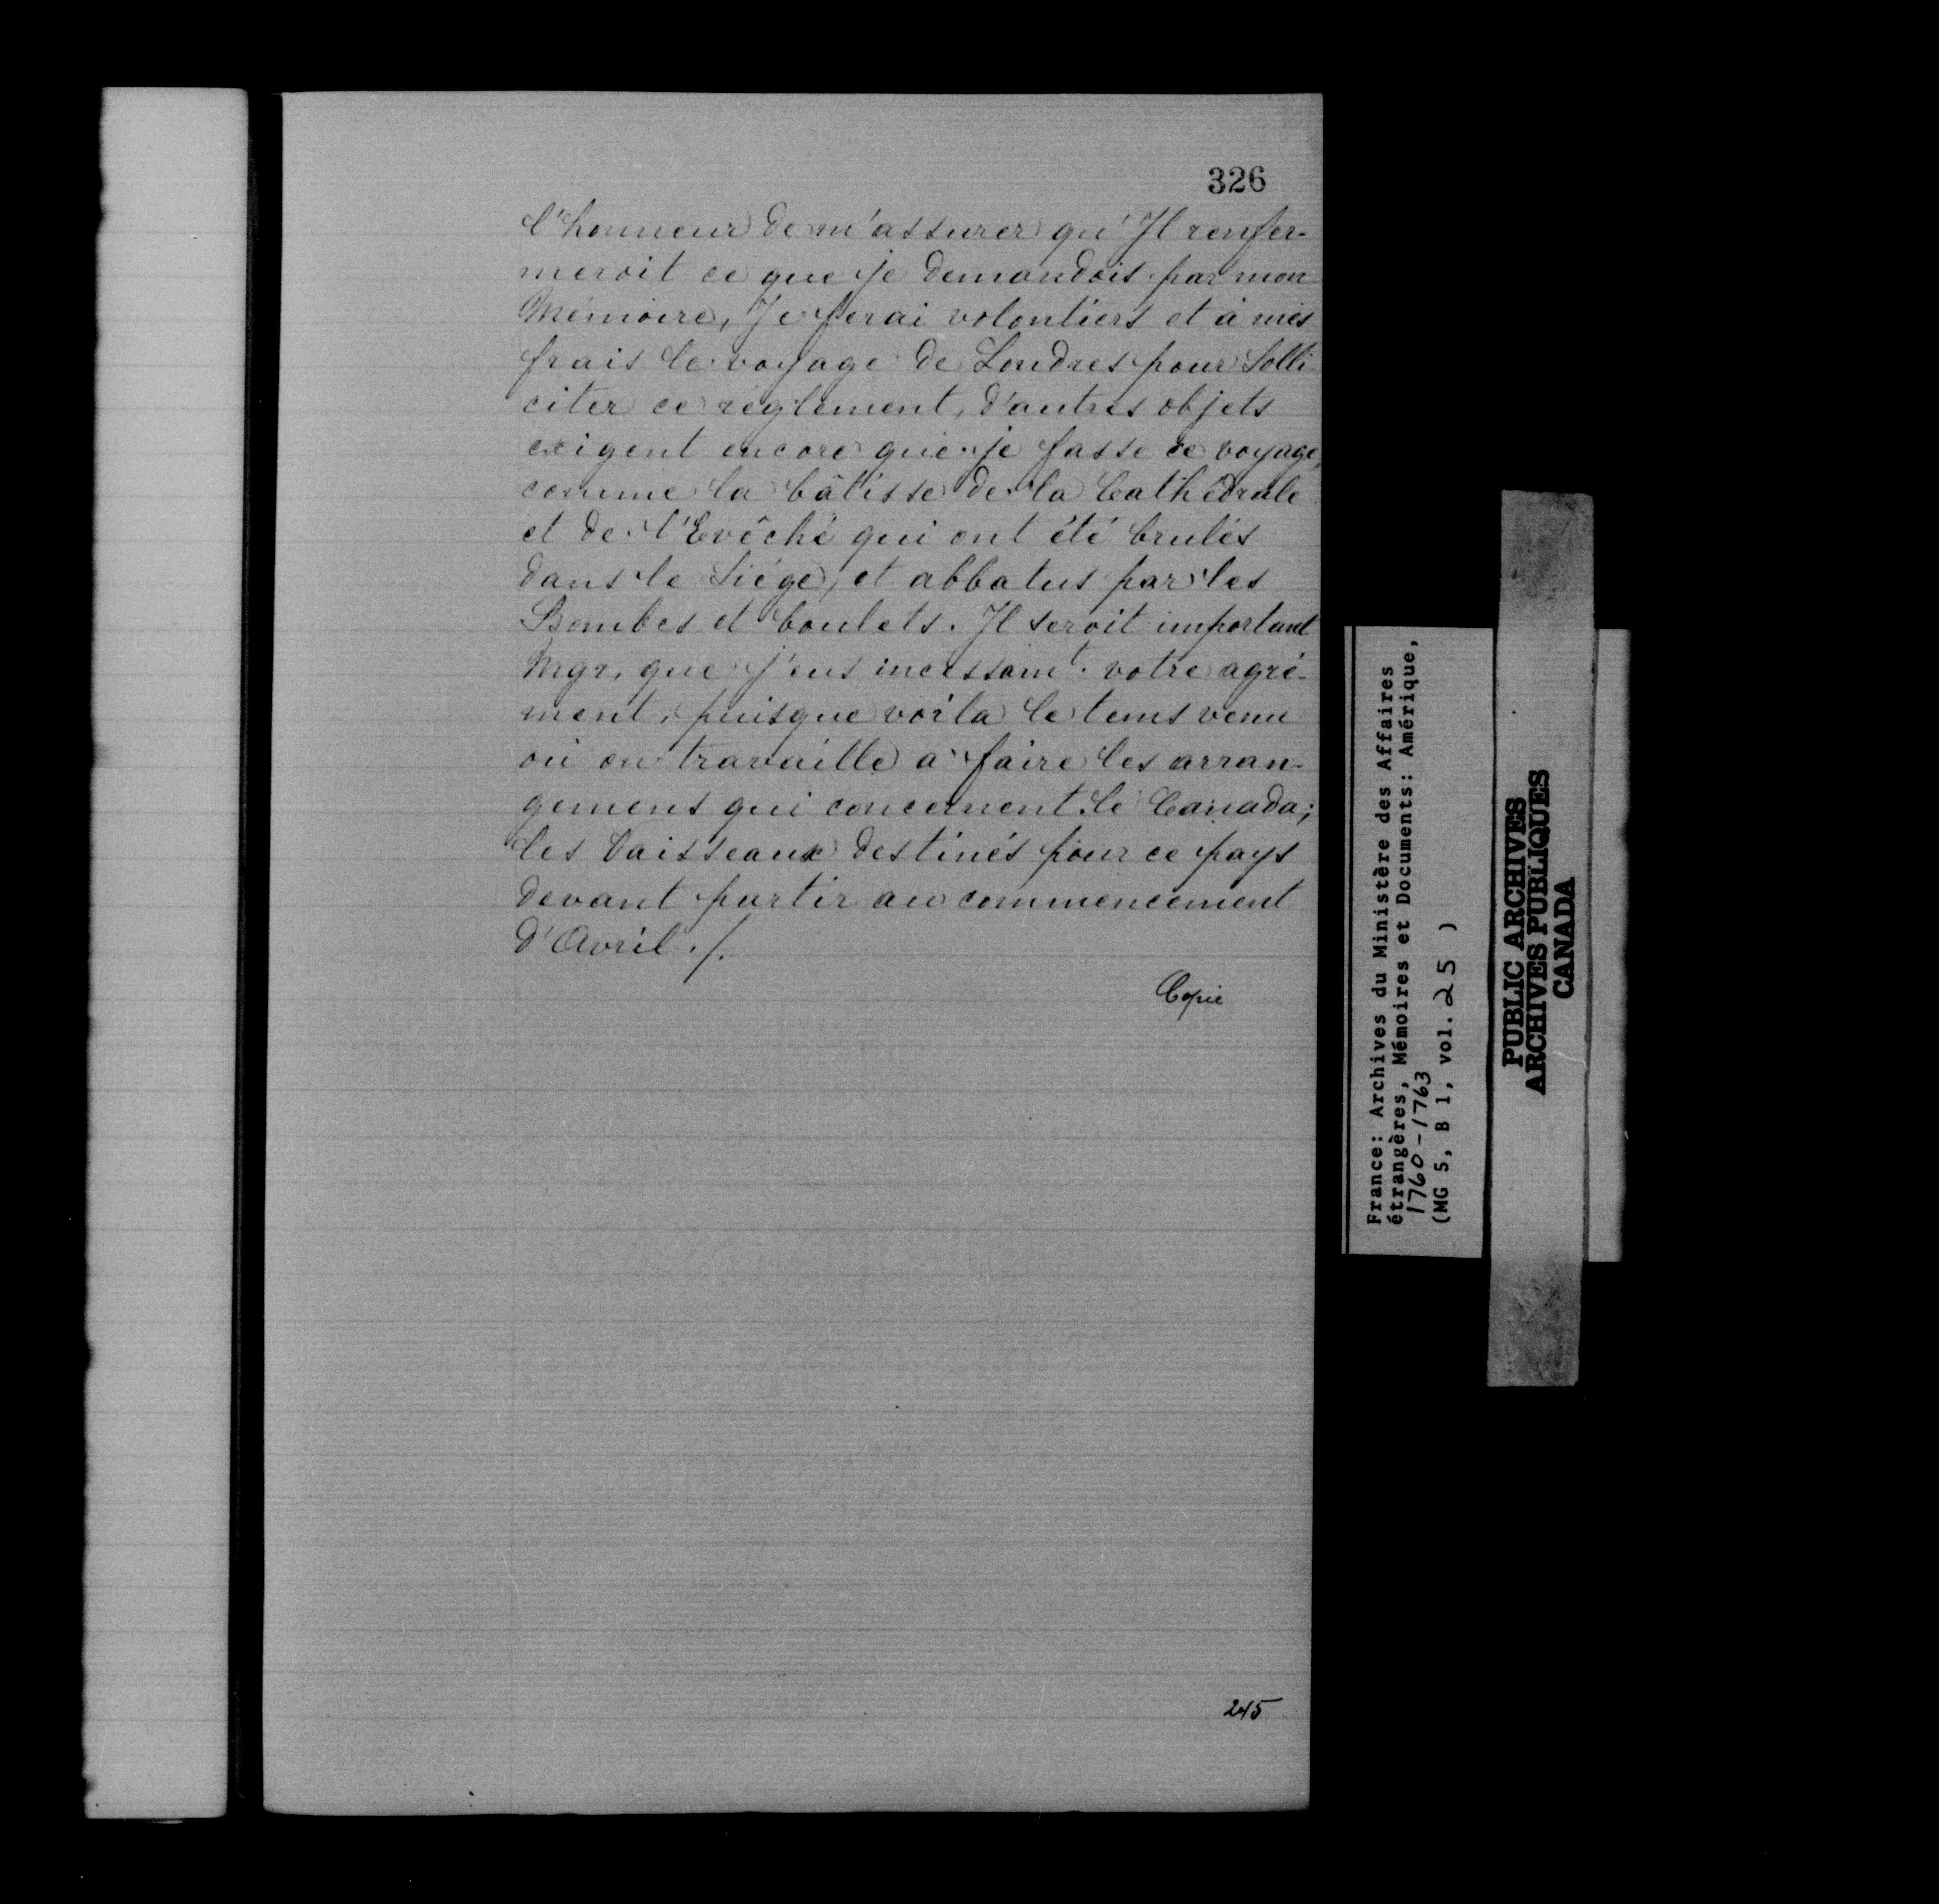 326
l'honneur de m'assurer qu'Il renfer-
meroit ce que je demandois par mon
Mémoire, Je ferai volontiers et à mes
frais le voyage de Londres pour Solli-
citer ce réglement, d'autres objets
exigent encore que je fasse ce voyage,
comme la bâtisse de la Cathédrale
et de l'Evêché qui ont été brulés
dans le Siége, et abbatus par les
Bombes et boulets. Il seroit important
Mgr, que j'eus incessamt. votre agré-
ment, puisque voila le tems venu
où on travaille a faire les arran-
gemens qui concernent le Canada;
les Vaisseaux destinés pour ce pays
devant partir au commencement
d'Avril ./.
Copie
245
France: Archives du Ministère des Affaires
étrangères, Mémoires et Documents: Amérique,
1760-1763
(MG 5, B 1, vol. 25 )
PUBLIC ARCHIVES
ARCHIVES PUBLIQUES
CANADA